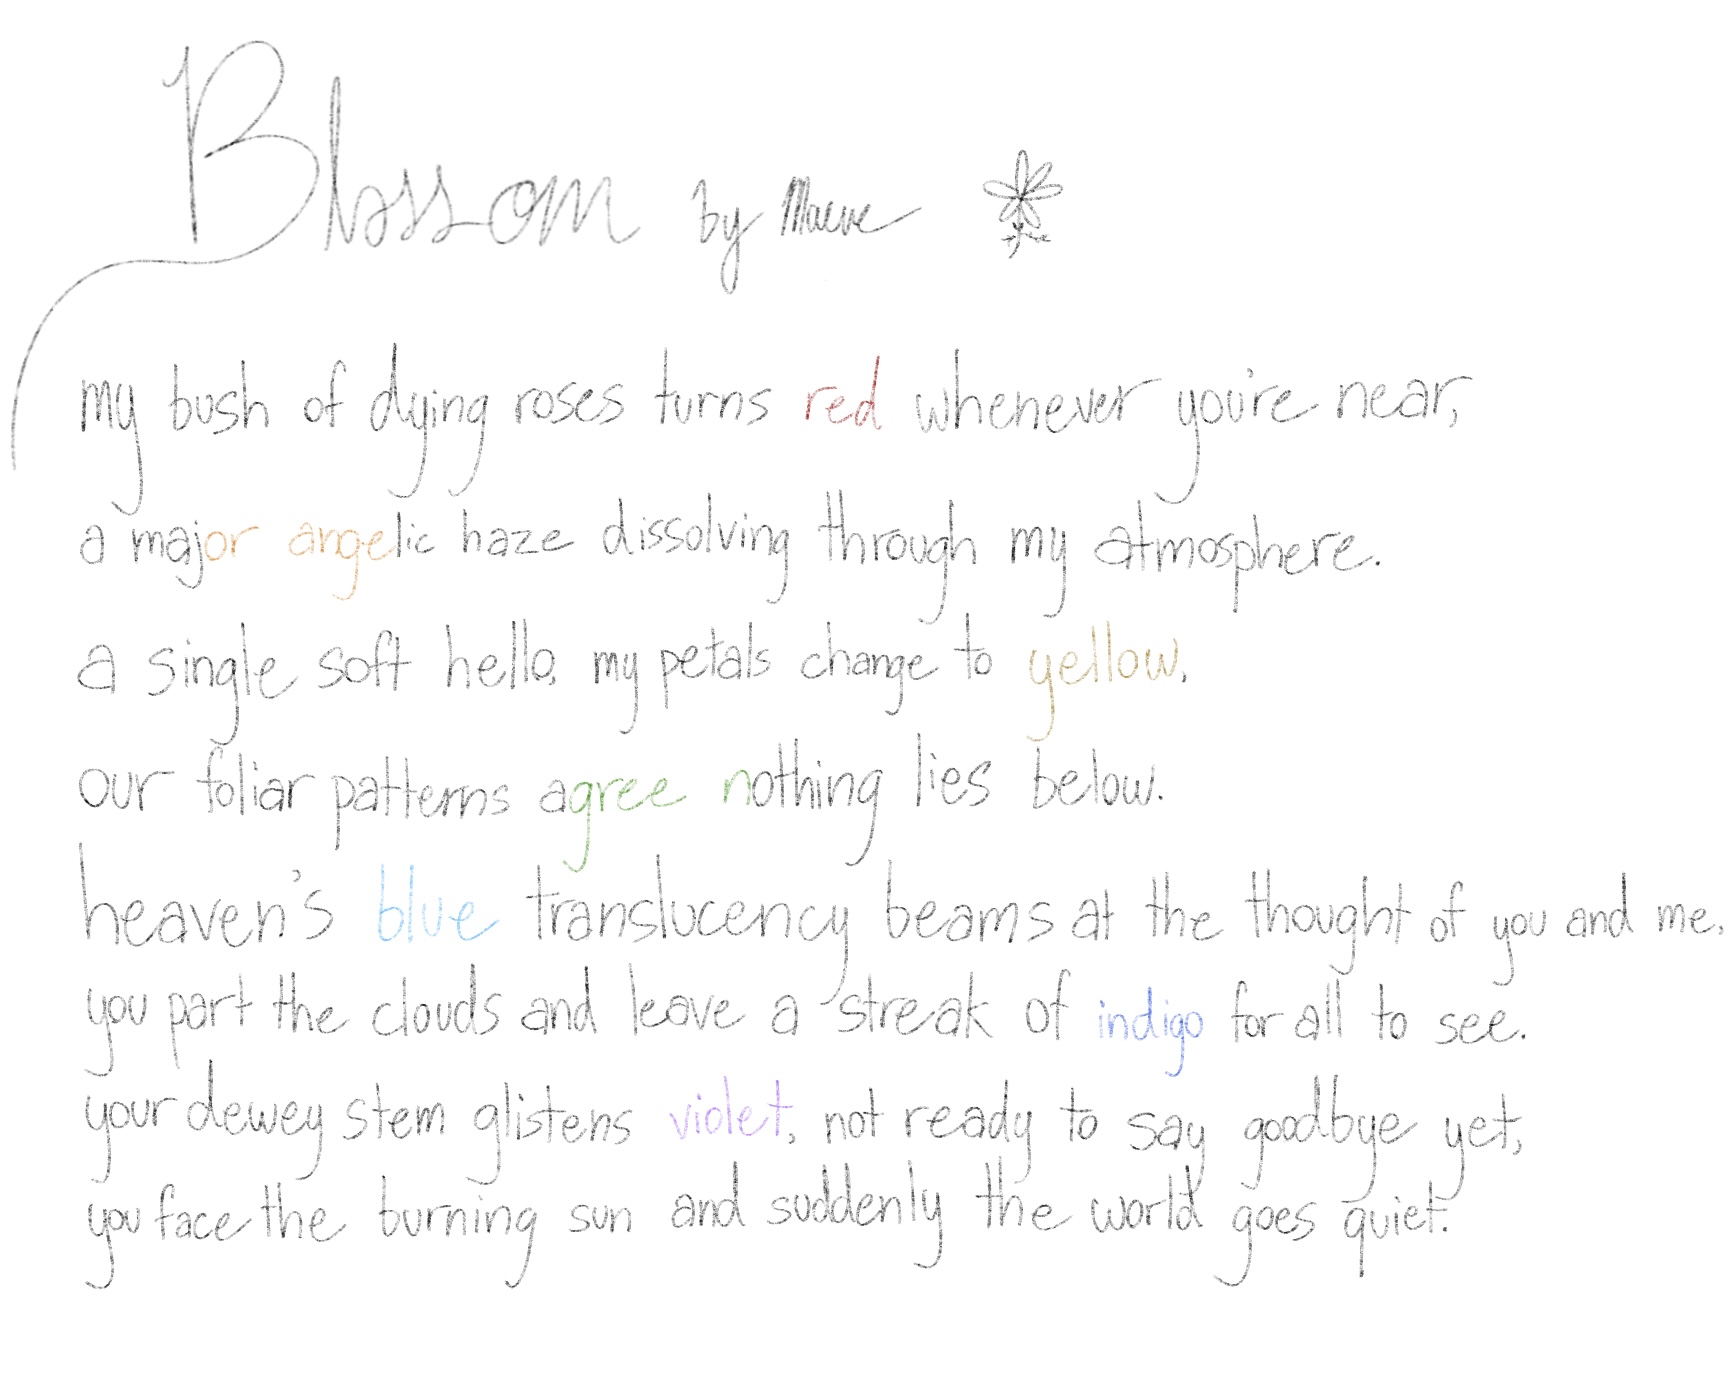 Blossom by Maeve
my bush of dying roses turns red whenever you're near,
a major angelic haze dissolving through my atmosphere.
a single soft hello, my petals change to yellow,
our foliar patterns agree nothing lies below.
heaven's blue translucency beams at the thought of you and me,
you part the clouds and leave a streak of indigo for all to see.
your dewey stem glistens violet, not ready to say goodbye yet,
you face the burning sun and suddenly the world goes quiet.